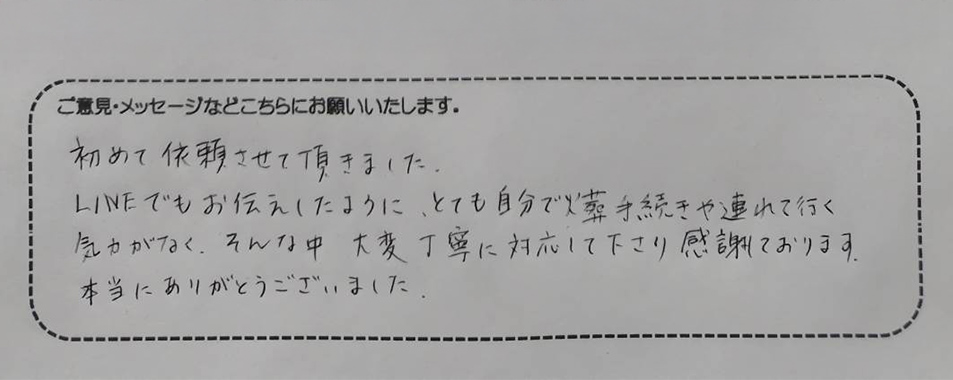 ご意見・メッセージなどこちらにお願いいたします。
初めて依頼させて頂きました。
LINEでもお伝えしたように、とても自分で火葬手続きや連れて行く
気力がなく、そんな中 大変丁寧に対応して下さり感謝しております。
本当にありがとうございました。